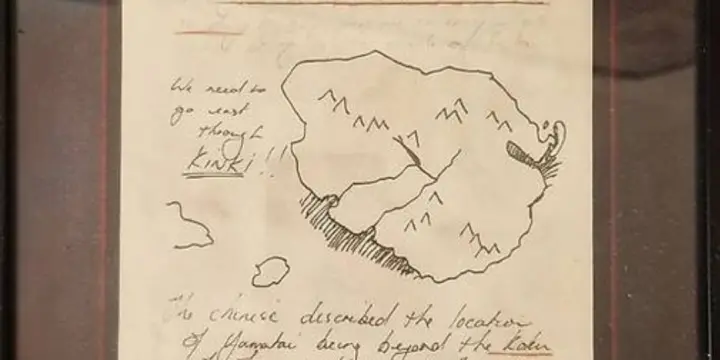 We need to
go east
through
KINKI!!
The chinese described the location
of Yamatai being beyond the